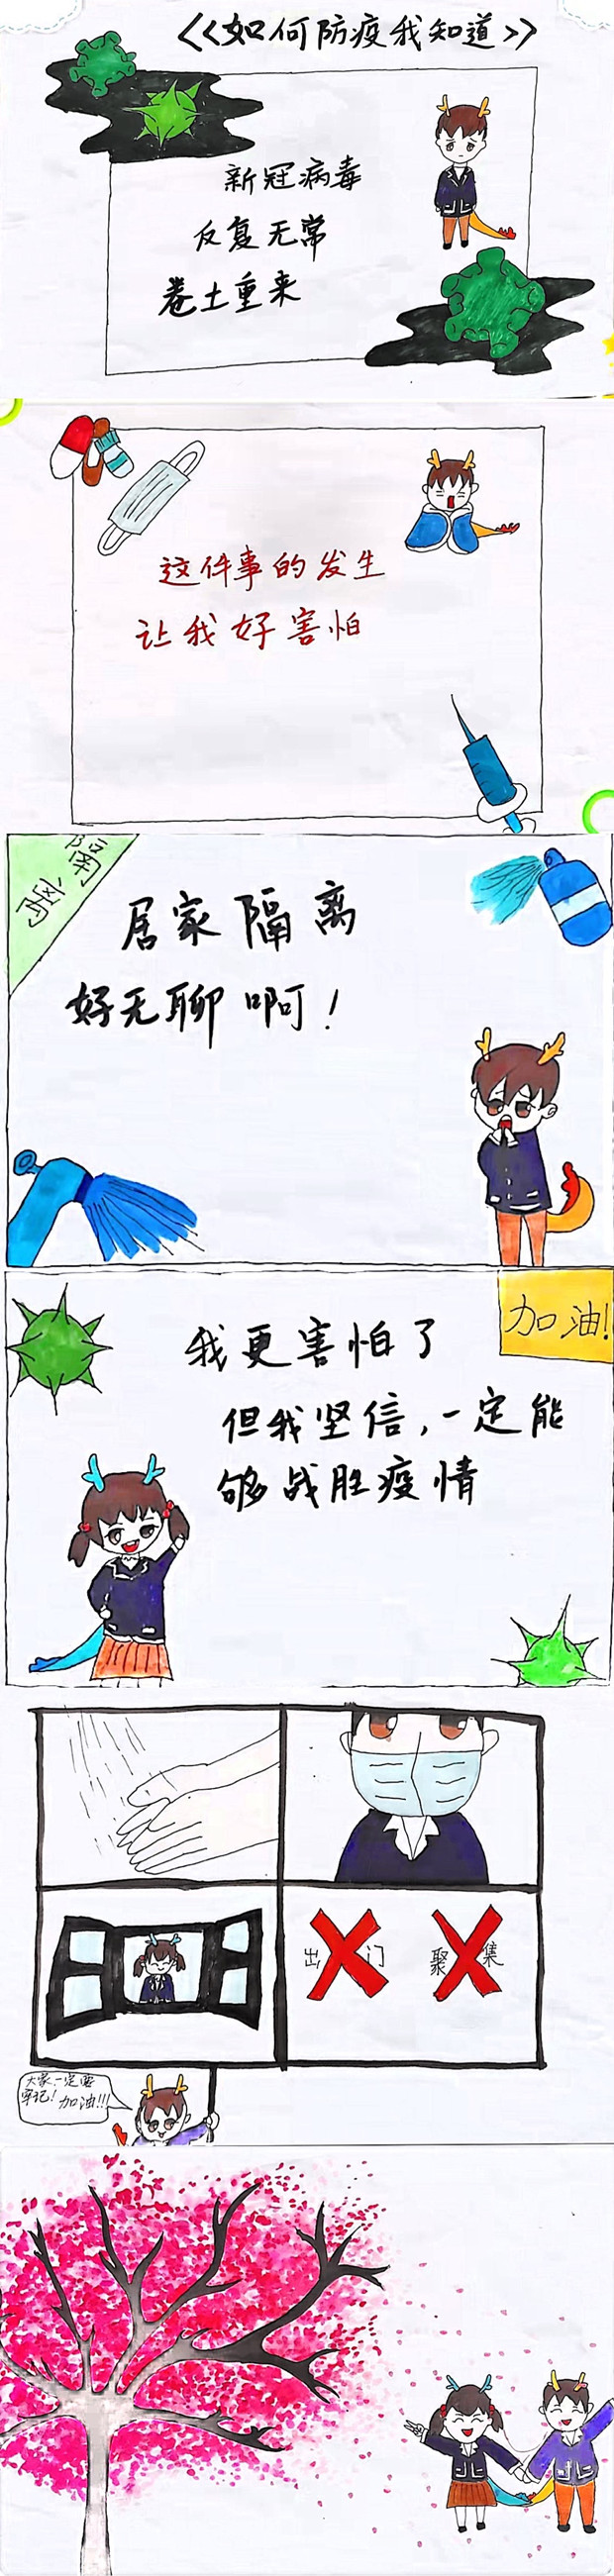 <<如何防疫我知道>>
新冠病毒
反复无常
卷土重来
这件事的发生
让我好害怕
隔
离
居家隔离
好无聊啊！
加油！
我更害怕了
但我坚信，一定能
够战胜疫情
出门
聚集
大家一定要
牢记！加油！！！